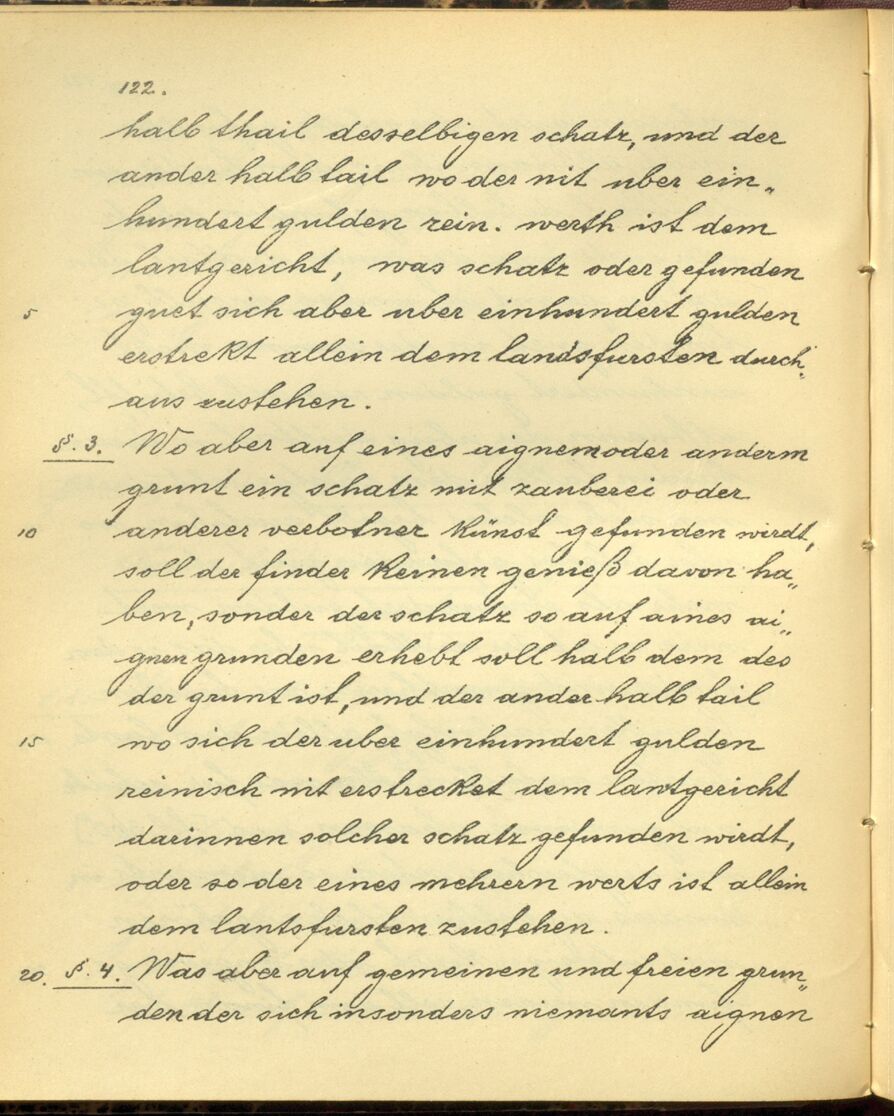 122.
halb thail desselbigen schatz, und der
ander halb tail wo der nit uber ein„
hundert gulden rein. werth ist dem
lantgericht, was schatz oder gefunden
5 guet sich aber uber einhundert gulden
erstrekt allein dem landsfursten durch„
aus zustehen.
§. 3. Wo aber auf eines aignem oder anderm
grunt ein schatz mit zauberei oder
10 anderer verbotner künst gefunden wirdt,
soll der finder keinen genieß davon ha„
ben, sonder der schatz so auf aines ai„
gnen grunden erhebt soll halb dem des
der grunt ist, und der ander halb tail
15 wo sich der uber einhundert gulden
reinisch nit erstrecket dem lantgericht
darinnen solcher schatz gefunden wirdt,
oder so der eines mehrern werts ist allein
dem lantsfursten zustehen.
20. §. 4. Was aber auf gemeinen und freien grun„
den der sich insonders niemants aignen